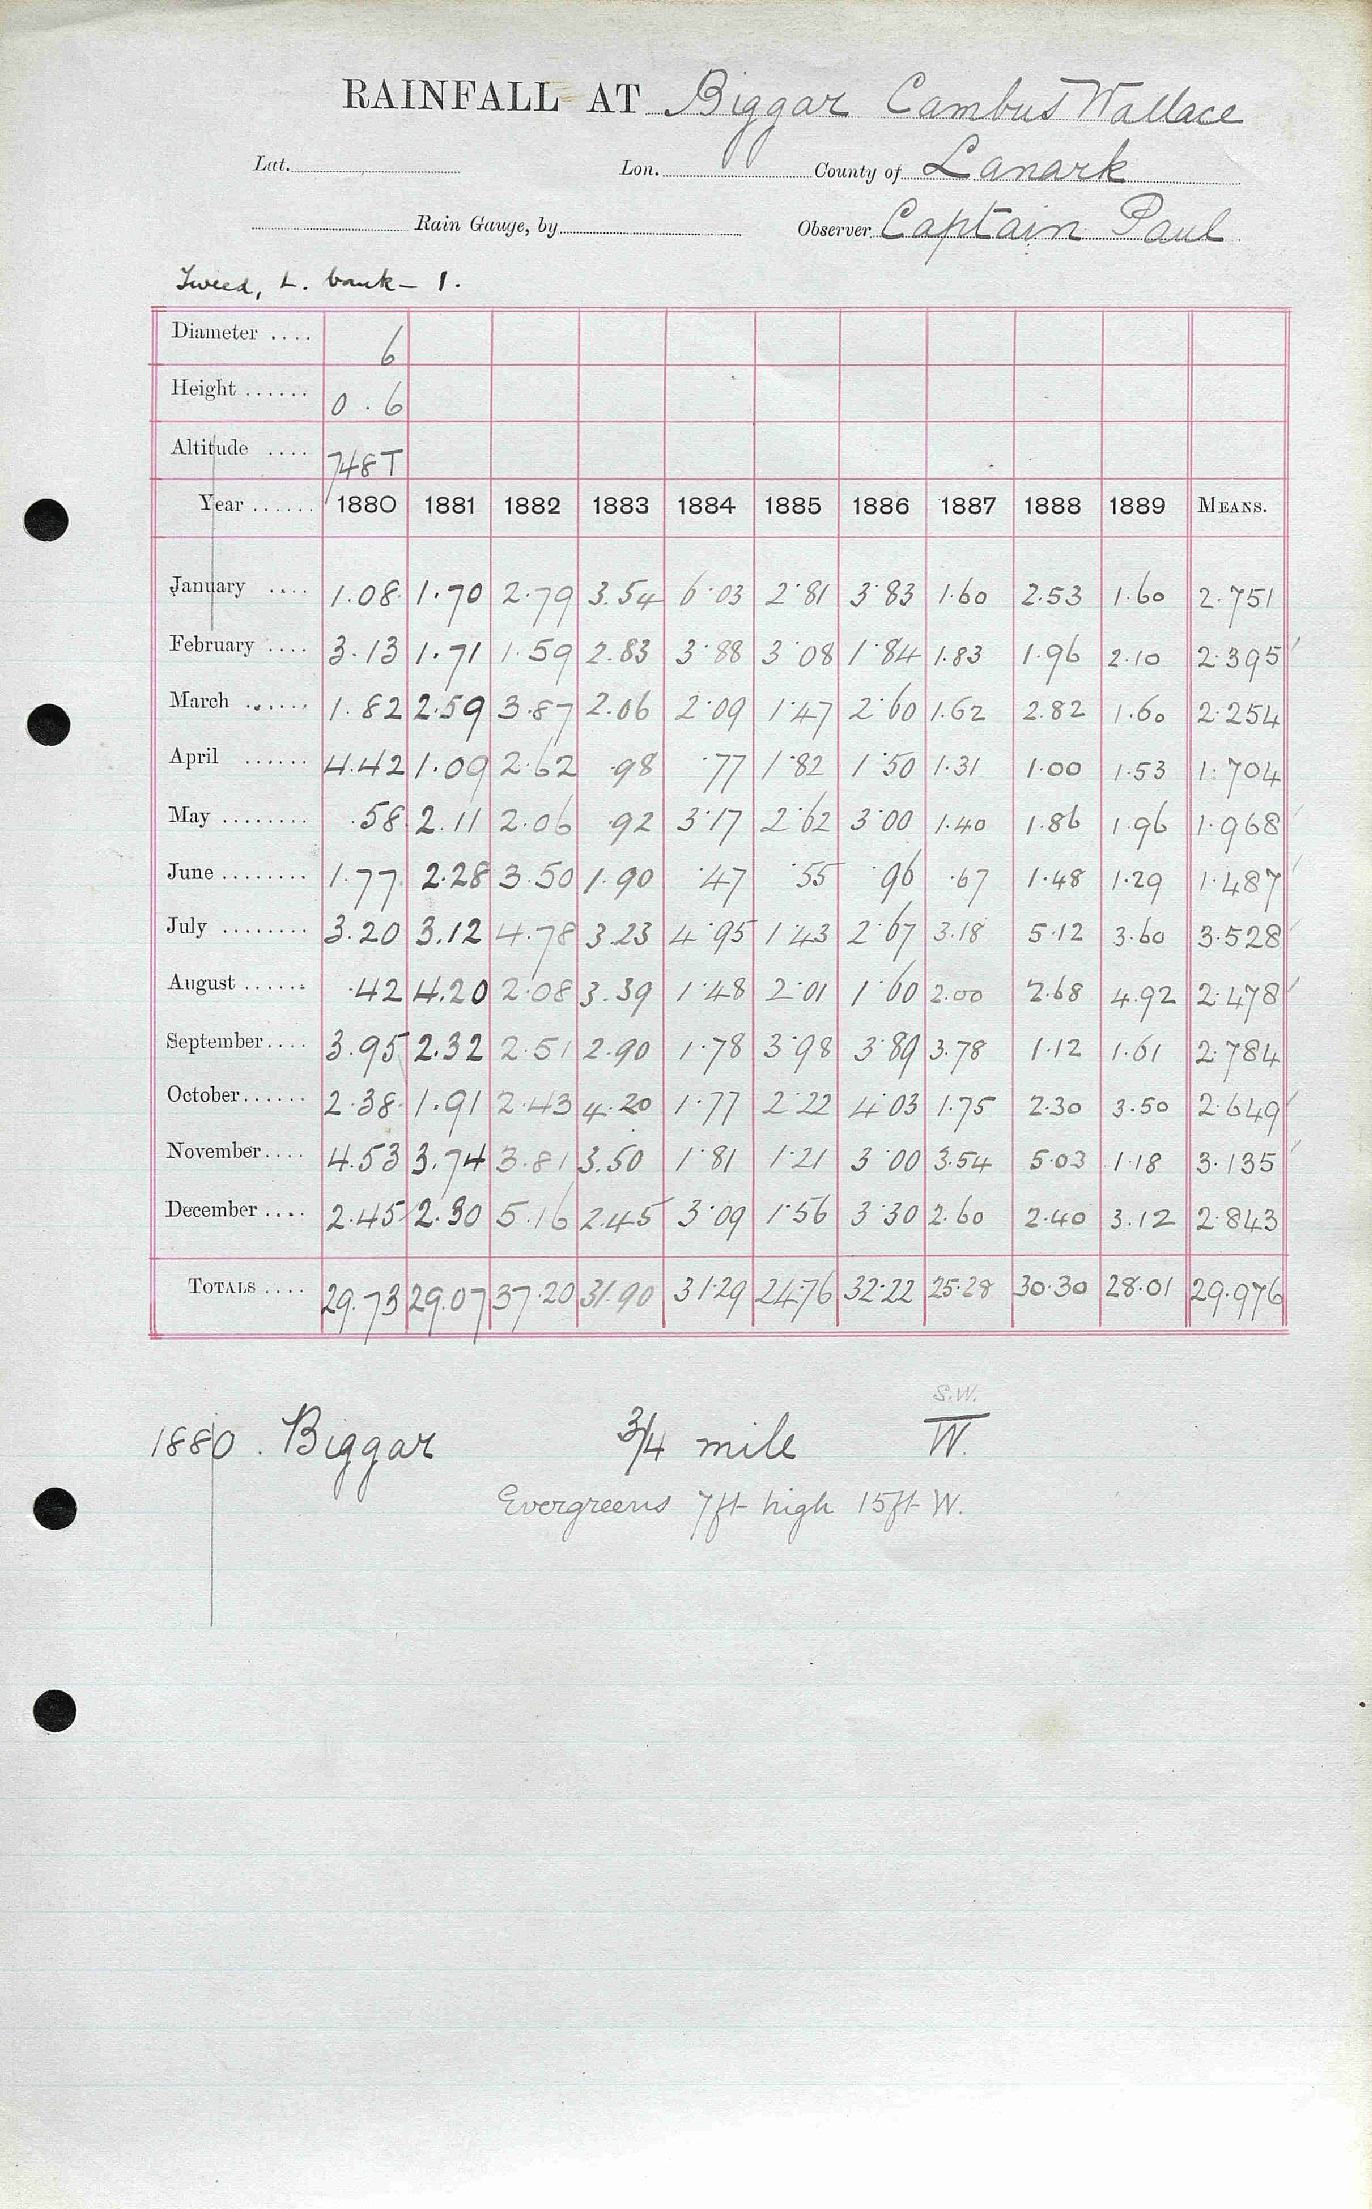 RAINFALL AT Biggar Cambus Wallace
Lat. Lon. County of Lanark
Rain Gauge, by Observer Captain Paul
Tweed, L. bank – 1.
Diameter .... 6
Height ...... 0 . 6
Altitude .... 748T
Year ...... 1880 1881 1882 1883 1884 1885 1886 1887 1888 1889 MEANS.
January .... 1.08 1.70 2.79 3.54 6.03 2.81 3.83 1.60 2.53 1.60 2.751
February .... 3.13 1.71 1.59 2.83 3.88 3.08 1.84 1.83 1.96 2.10 2.395
March ...... 1.82 2.59 3.87 2.06 2.09 1.47 2.60 1.62 2.82 1.60 2.254
April ...... 4.42 1.09 2.62 .98 .77 1.82 1.50 1.31 1.00 1.53 1.704
May ........ .58 2.11 2.06 .92 3.17 2.62 3.00 1.40 1.86 1.96 1.968
June ........ 1.77 2.28 3.50 1.90 .47 .55 .96 .67 1.48 1.29 1.487
July ........ 3.20 3.12 4.78 3.23 4.95 1.43 2.67 3.18 5.12 3.60 3.528
August ...... .42 4.20 2.08 3.39 1.48 2.01 1.60 2.00 2.68 4.92 2.478
September .... 3.95 2.32 2.51 2.90 1.78 3.98 3.89 3.78 1.12 1.61 2.784
October ...... 2.38 1.91 2.43 4.20 1.77 2.22 4.03 1.75 2.30 3.50 2.649
November .... 4.53 3.74 3.81 3.50 1.81 1.21 3.00 3.54 5.03 1.18 3.135
December .... 2.45 2.30 5.16 2.45 3.09 1.56 3.30 2.60 2.40 3.12 2.843
TOTALS .... 29.73 29.07 37.20 31.90 31.29 24.76 32.22 25.28 30.30 28.01 29.976
S.W.
1880 . Biggar 3/4 mile W.
Evergreens 7ft high 15ft W.